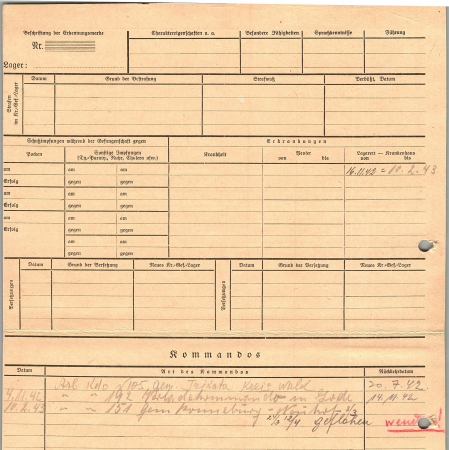 Beschriftung der Erkennungsmarke
Nr.
Lager:
Charaktereigenschaften u. a.
Besondere Fähigkeiten
Sprachkenntnisse
Führung
Strafen im Kr.-Gef.-Lager
Datum
Grund der Bestrafung
Strafmaß
Verbüßt, Datum
Schutzimpfungen während der Gefangenschaft gegen
Erkrankungen
Pocken
Sonstige Impfungen
(Ty.-Paratyp., Ruhr, Cholera usw.)
Krankheit
Revier
von bis
Lazarett — Krankenhaus
von bis
am am am
16.11.42 = 10.2.43
Erfolg gegen gegen
am am am
Erfolg gegen gegen
am am am
Erfolg gegen gegen
am am
gegen gegen
Versetzungen
Datum
Grund der Versetzung
Neues Kr.-Gef.-Lager
Versetzungen
Datum
Grund der Versetzung
Neues Kr.-Gef.-Lager
Kommandos
Datum
Art des Kommandos
Rückkehrdatum
Arb Kdo 20.7.42
9.11.42 " " 192 in 14.11.42
10.2.43 " " 151
geflohen